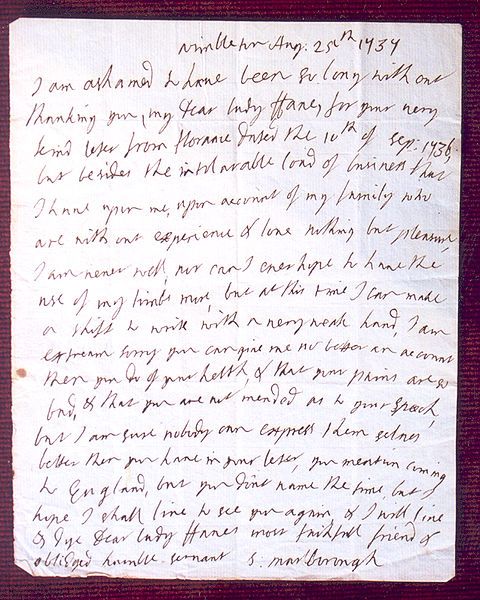 Wimbleton Aug. 25th 1737
I am ashamed to have been so long with out
thanking you, my dear Lady Hanes, for your very
kind leter from florance dated the 10th of Sep. 1736,
but besides the intolarable load of business that
I have upon me, upon account of my family who
are with out experience & love nothing but pleasure,
I am never well, nor can I ever hope to have the
use of my limbs more, but at this time I can make
a shift to write with a very weak hand, I am
extream sorry you can give me no better an account
then you do of your helth, & that your pains are so
bad, & that you are not mended as to your speech,
but I am sure nobody can express them selves
better then you have in your leter, you mention coming
to England, but you dont name the time, but I
hope I shall live to see you again & I will live
& dye dear Lady Hanes most faithfull friend &
oblidged humble servant S. Marlborough